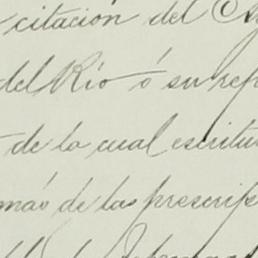 citación del
del Río ó su rep
de la cual escritu
más de las prescrip